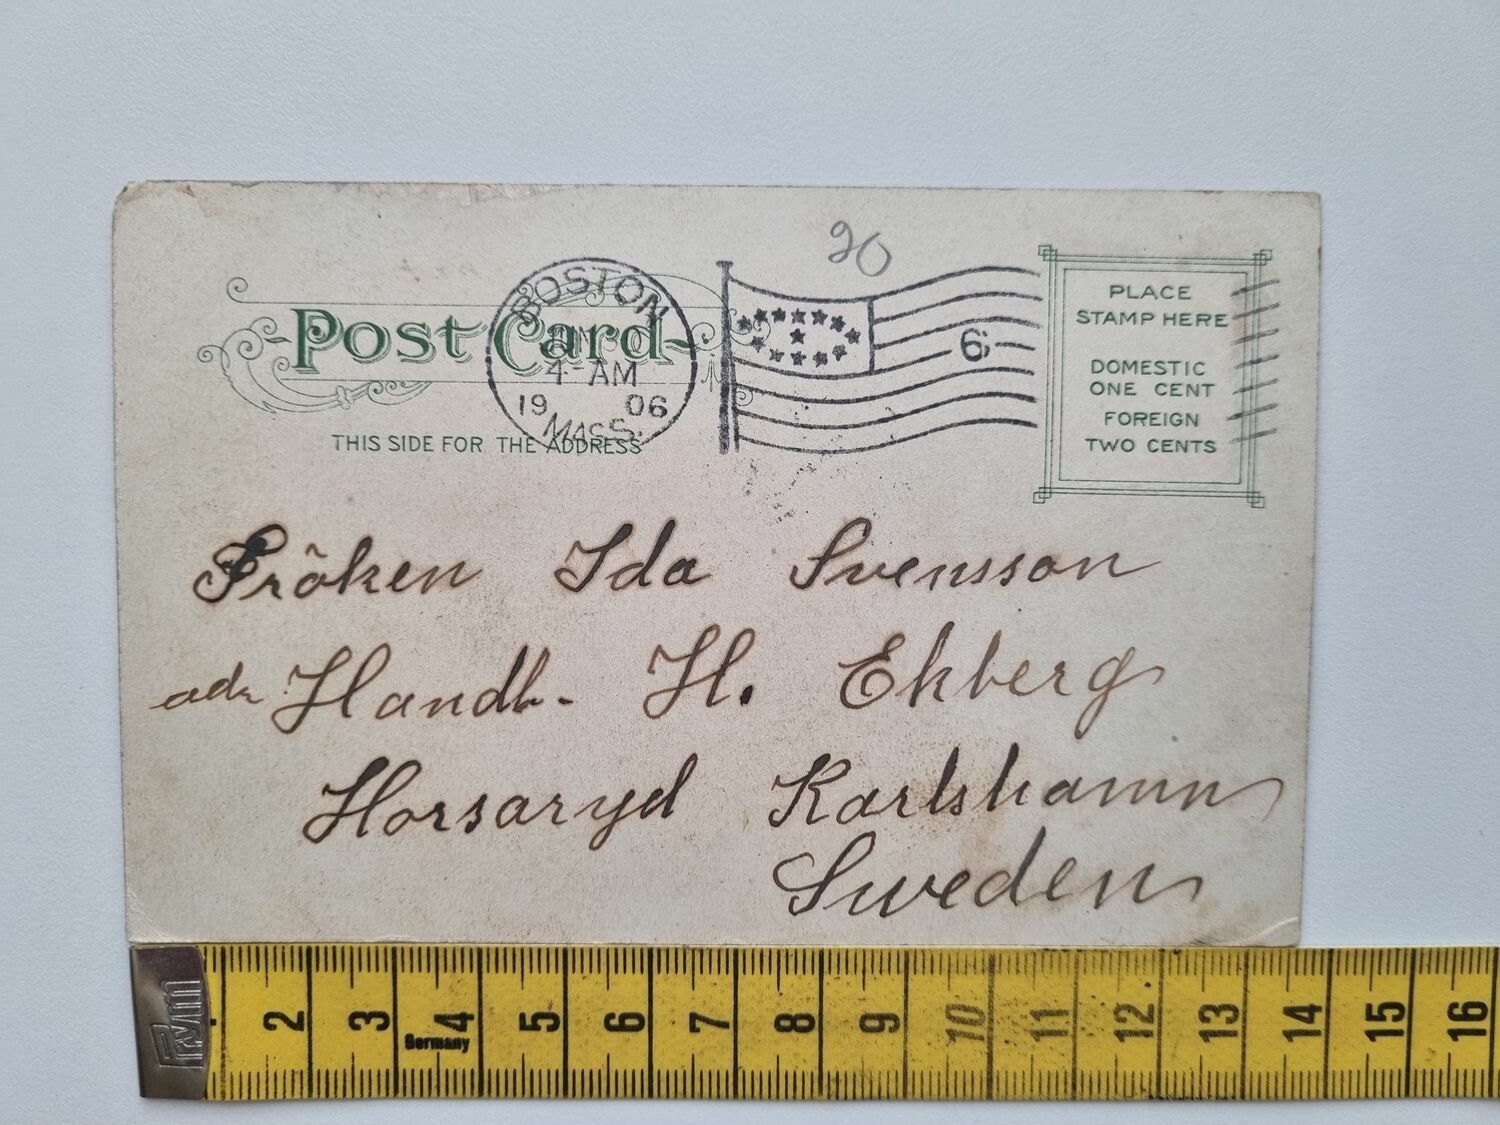 20
BOSTON
4-AM
19 06
MASS.
6
Post Card
THIS SIDE FOR THE ADDRESS
PLACE
STAMP HERE
DOMESTIC
ONE CENT
FOREIGN
TWO CENTS
Fröken Ida Svensson
adr Handl. H. Ekberg
Horsaryd Karlshamn
Sweden
PYM
Germany
2 3 4 5 6 7 8 9 10 11 12 13 14 15 16